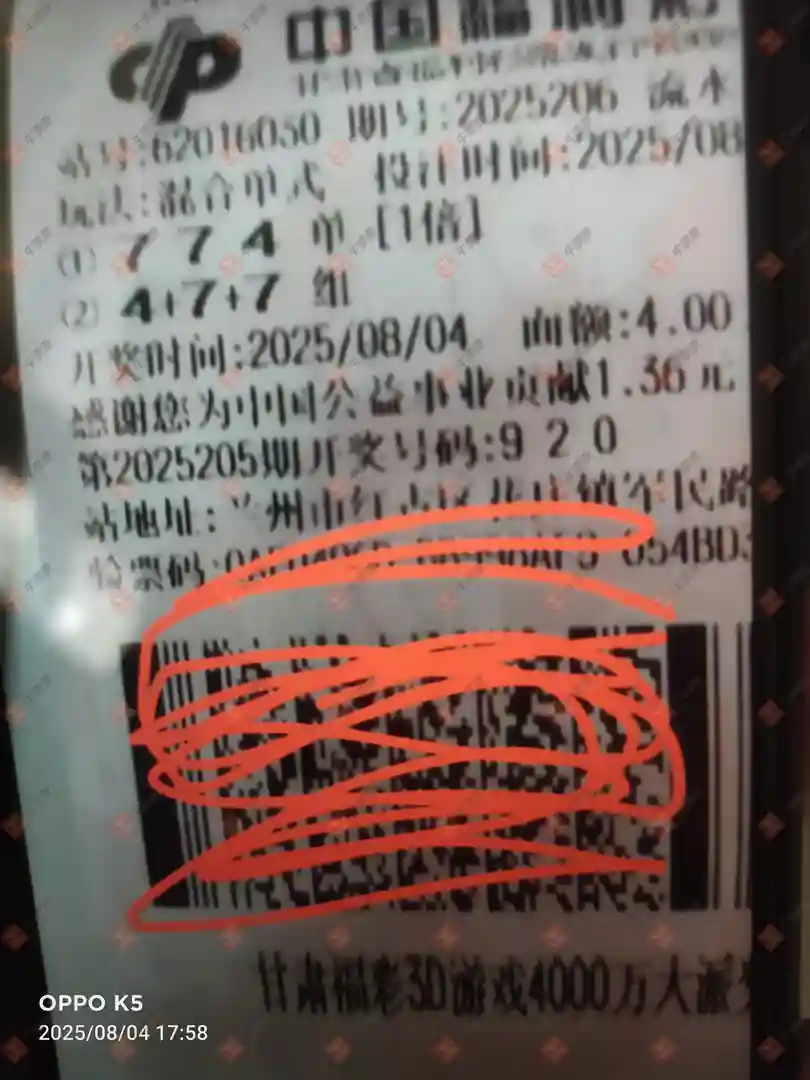 中国福利彩
站号:62016050 期号:2025206 流水
玩法:混合单式 投注时间:2025/08
(1) 7 7 4 单 [1倍]
(2) 4+7+7 组
开奖时间:2025/08/04 面额:4.00
感谢您为中国公益事业贡献1.36元
第2025205期开奖号码:9 2 0
站地址: 兰州市红古区花庄镇军民路
验票码: 054BD
甘肃福彩3D游戏4000万大派
OPPO K5
2025/08/04 17:58